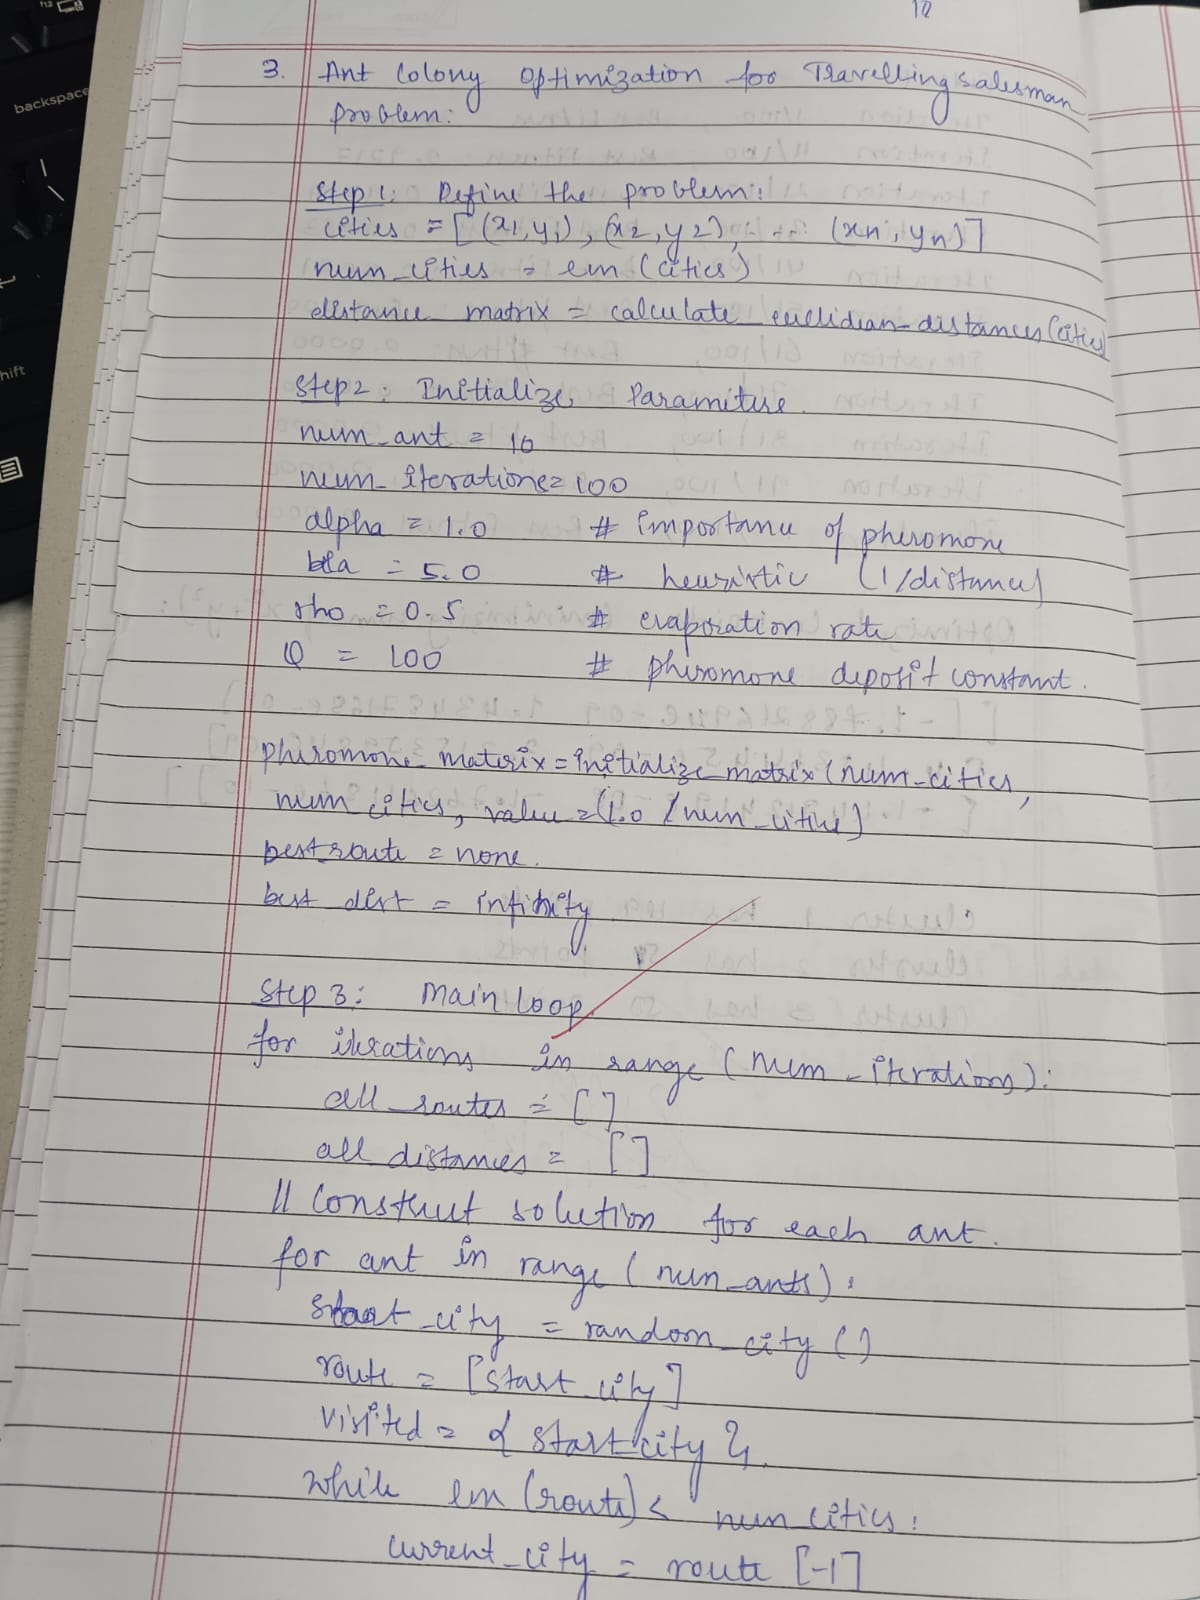 12
3. Ant Colony Optimization for Travelling salesman
problem:
Step 1: Define the problem:
cities = [(x1,y1), (x2,y2), ---- (xn,yn)]
num_cities = len(cities)
distance matrix = calculate_euclidian_distances(cities)
Step 2: Initialize Parameture.
num_ant = 10
num_iterations = 100
alpha = 1.0 # importance of pheromone
beta = 5.0 # heuristic (1/distance)
rho = 0.5 # evaporation rate
Q = 100 # phiromone deposit constant.
phiromone_materix = initialize_matrix(num_cities,
num_cities, value = (1.0 / num_cities)
best route = none.
best dist = infinity.
Step 3: Main loop.
for iterations in range (num_iterations):
all_routes = []
all distances = []
// Construct solution for each ant.
for ant in range (num_ants):
start_city = random_city()
route = [start_city]
visited = {start city}.
while len(route) < num cities:
current_city = route [-1]
backspace
shift